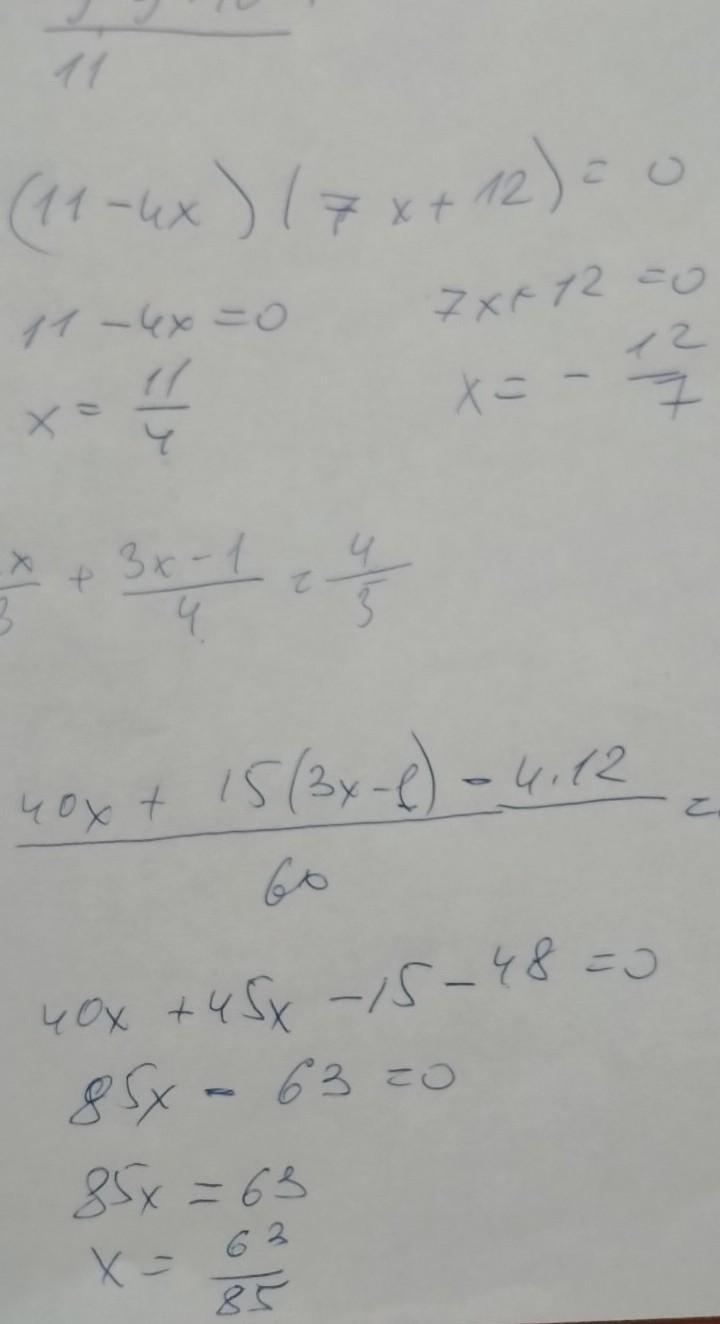 11
(11-4x)(7x+12)=0
11-4x=0
7x+12=0
x=11/4
x=-12/7
x/3+(3x-1)/4=4/5
(40x+15(3x-1)-4.12)/60=
40x+45x-15-48=0
85x-63=0
85x=63
x=63/85